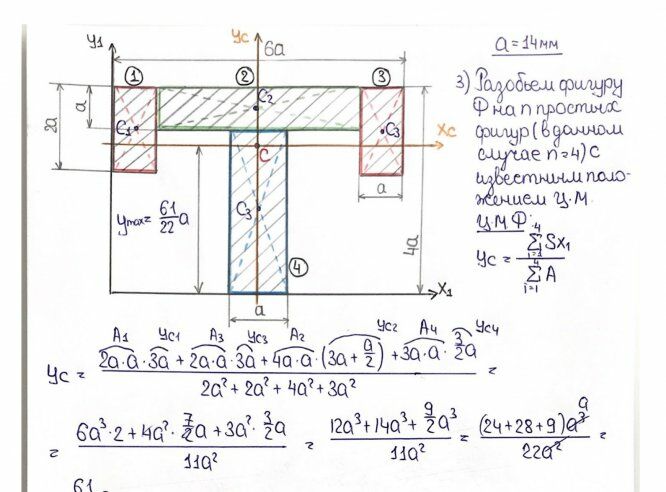 y₁
yc
6a
a = 14мм
① ② ③
2a
a
C₁
C₂
C₃
xc
C
a
yмax = 61/22 a
C₃
4a
④
x₁
a
3) Разобьем фигуру
Ф на n простых
фигур (в данном
случае n=4) с
известным поло-
жением Ц.М.
ЦМФ:
yc = ∑⁴ᵢ₌₁ Sx₁ / ∑⁴ᵢ₌₁ A
A₁ yc₁ A₃ yc₃ A₂ yc₂ A₄ yc₄
yc = (2a·a·3a + 2a·a·3a + 4a·a·(3a + a/2) + 3a·a·3/2 a) / (2a² + 2a² + 4a² + 3a²) =
= (6a³·2 + 4a²·7/2 a + 3a²·3/2 a) / 11a² = (12a³ + 14a³ + 9/2 a³) / 11a² = (24+28+9)a³ a / 22a² =
61